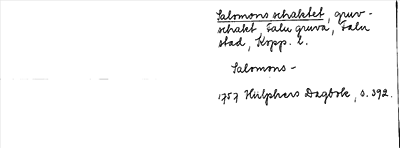 Salomons schaktet, gruv-
schakt, Falu gruva, Falu
stad, Kopp. l.
Salomons -
1757 Hülphers Dagbok, s. 392.